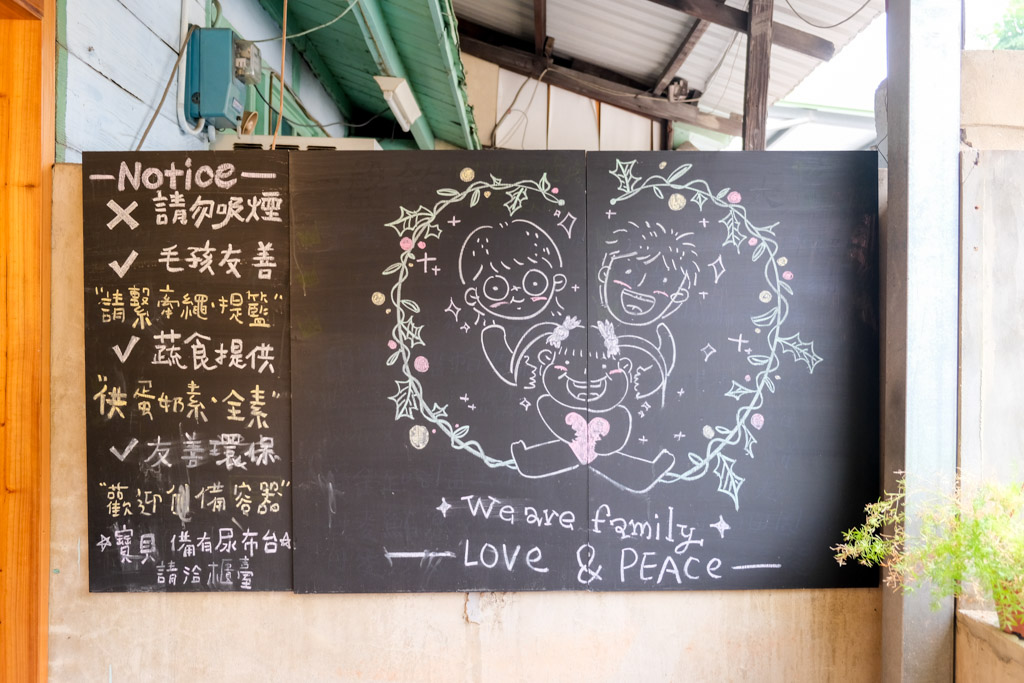 —Notice—
✕ 請勿吸煙
✓ 毛孩友善
"請繫牽繩·提籃"
✓ 蔬食提供
"供蛋奶素·全素"
✓ 友善環保
"歡迎自備容器"
☆寶貝 備有尿布台☆
請洽櫃臺
We are family
— LOVE & PEACe —